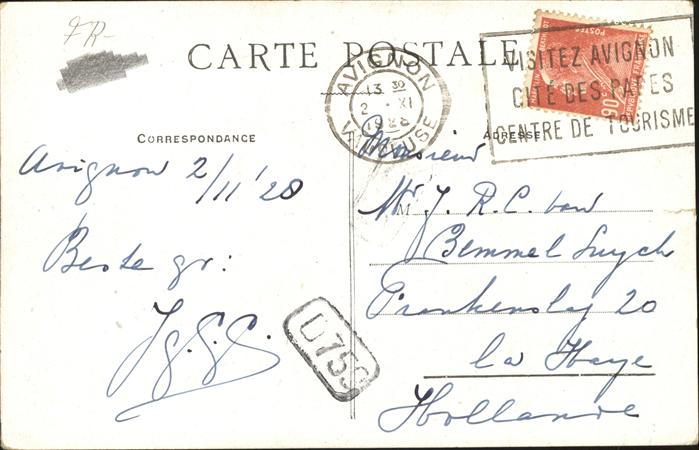 FR-
CARTE POSTALE
AVIGNON
13 30
2 - XI
VAUCLUSE
VISITEZ AVIGNON
CITÉ DES PAPES
CENTRE DE TOURISME
POSTES
RÉPUBLIQUE FRANÇAISE
CORRESPONDANCE
ADRESSE
Avignon 2/11 '28
Beste gr:
D759
Monsieur
M
Mr J. R. C. van
Bemmel Suyck
20
la Haye
Hollande